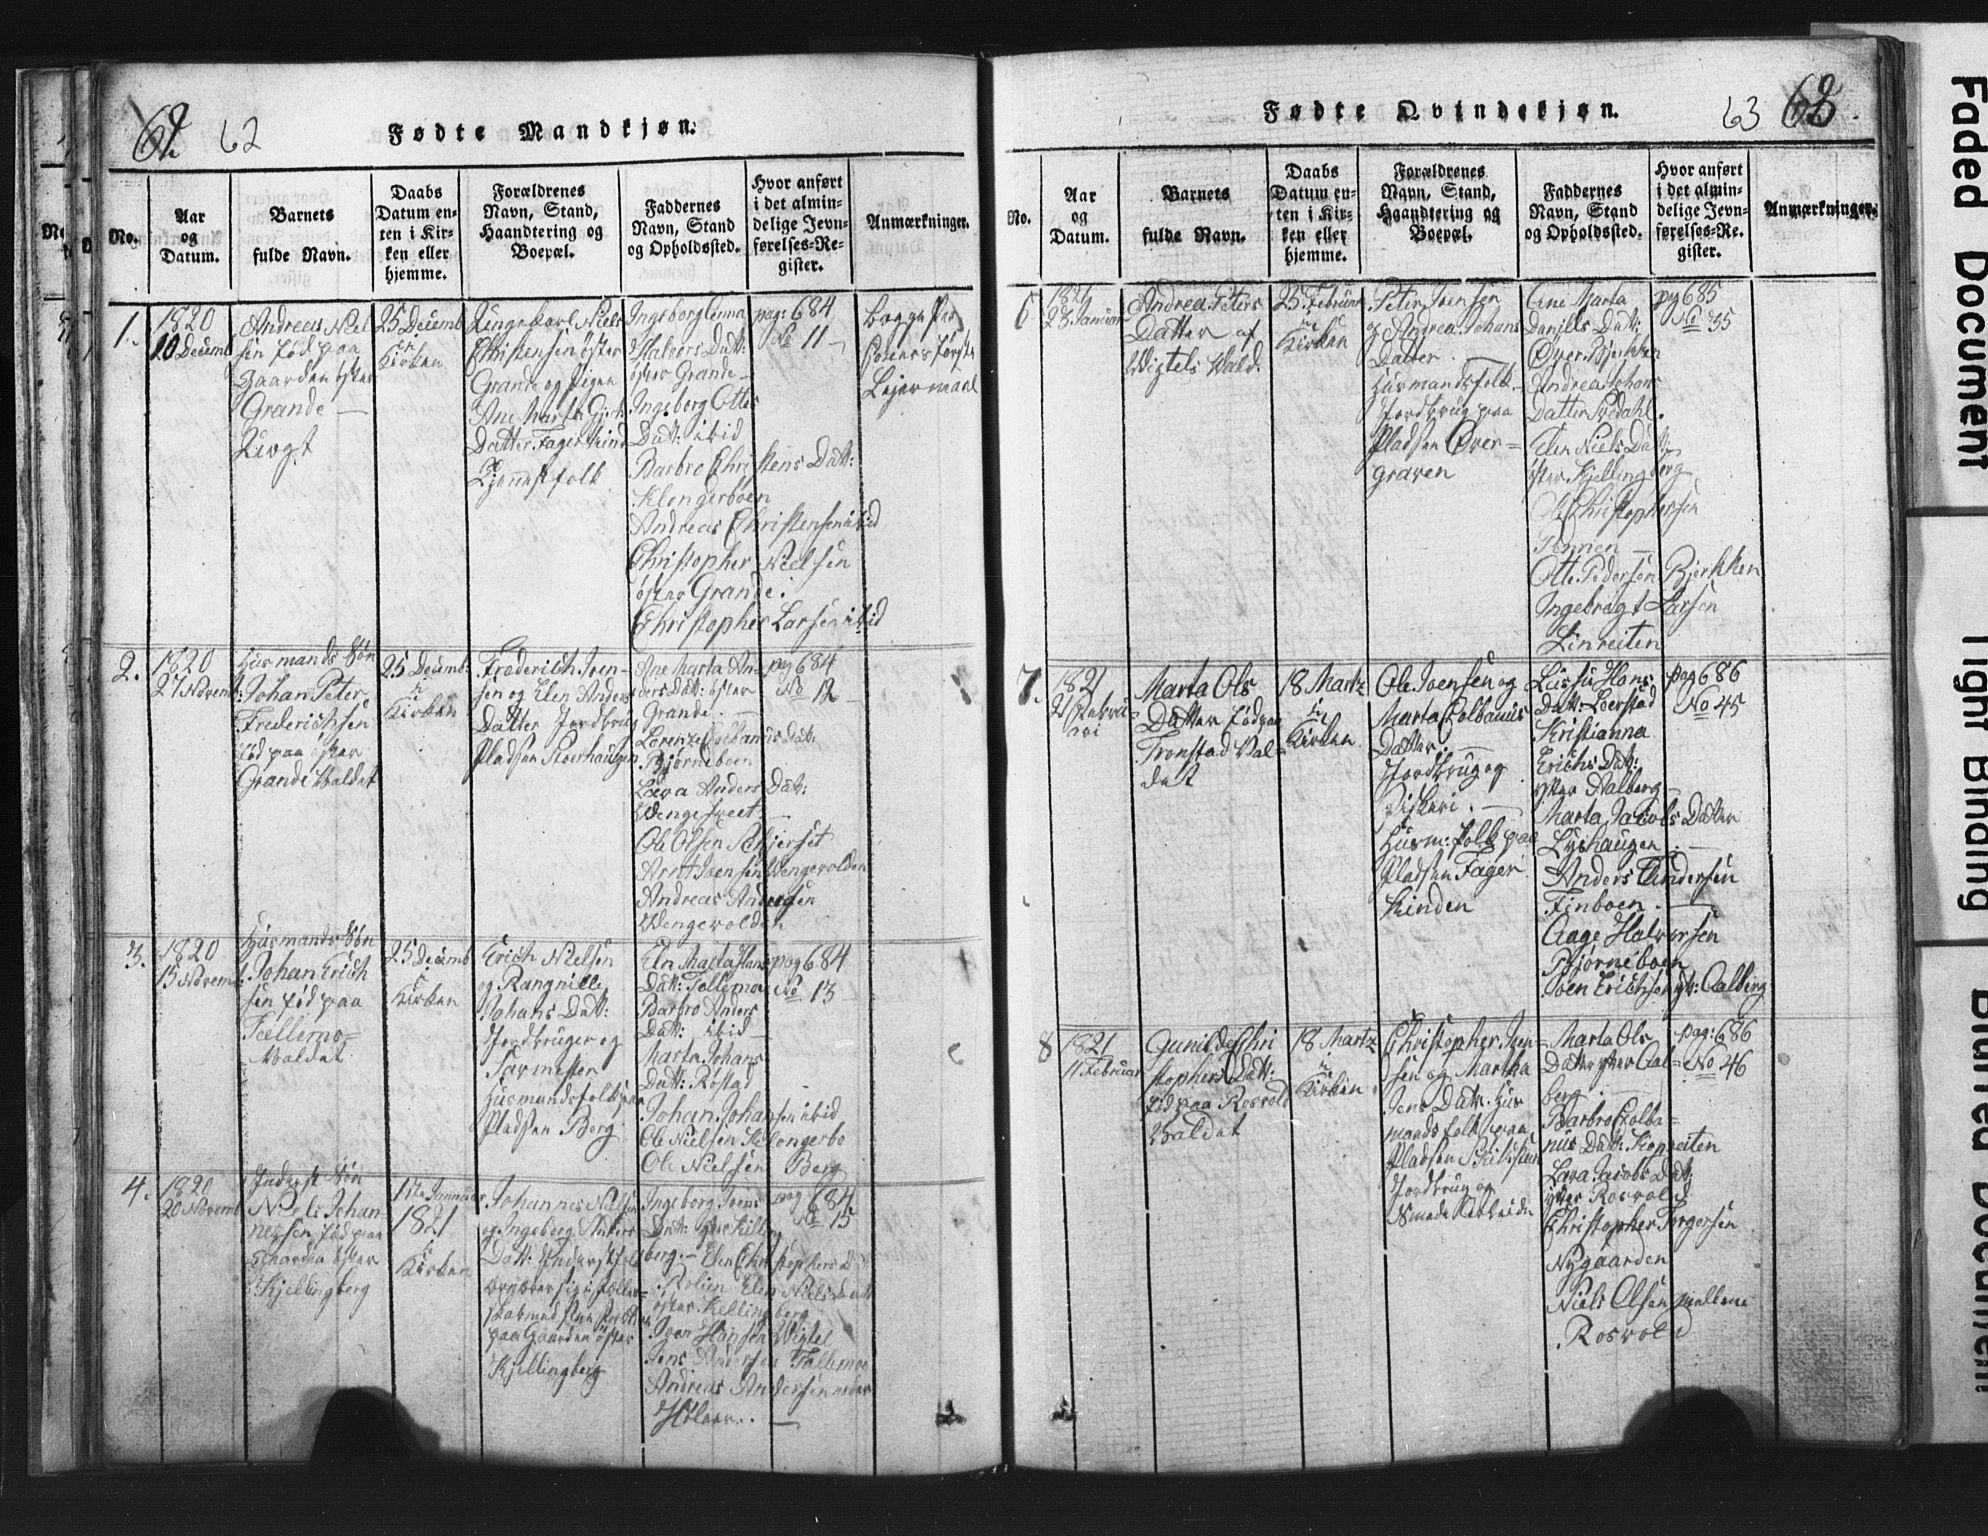 62 62
Fødte Mandkjøn.
No.
Aar
og
Datum.
Barnets
fulde Navn.
Daabs
Datum en-
ten i Kir-
ken eller
hjemme.
Forældrenes
Navn, Stand,
Haandtering og
Boepæl.
Faddernes
Navn, Stand
og Opholdssted.
Hvor anført
i det almin-
delige Jevn-
førelses-Re-
gister.
Anmærkninger.
1.
1820
20 Decemb
Andreas Niel
sen fød paa
Gaarden öster
Grande
25 Decemb
i
Kirken
Ungekarl Niels
Christensen öster
Grande og Pigen
Ane Marta
Datter Fagerkind
Tjennestfolk
Ingeborg Anna
Halvors Datt:
öster Grande
Ingeborg Ottes
Datt: ibid
Barbro Christens Datt:
Klengerboen
Andreas Christensen ibid
Christopher Nielsen
öster Grande.
Christopher Larsen ibid
pag: 684
No 11
begge Per
soners første
Lejermaal
2.
1820
27 Novemb:
Husmands Søn
Johan Peter
Frederichsen
fød paa öster
Grande Valdet
25 Decemb:
i
Kirken
Frederich Iven-
sen og Elen Anders
Datter Jordbrug
Pladsen Stoerhaugen
Ane Marta An-
ders Datt: öster
Grande
Lorenze Colbanus Datt:
Bjørneboen
Anders Datt:
Ole Olsen
Arnt Joensen Wengevolden
Andreas Andersen
Wengevolden
pag 684
No 12
3.
1820
15 Novemb
Husmands Søn
Johan Erich
sen fød paa
Fællemo-
Valdet
25 Decemb
i
Kirken
Erich Nielsen
og Rangnille
Johans Datt:
Jordbruger og
Husmandsfolk paa
Pladsen Berg
Eln Marta Hans
Datt: Fallemo
Barbro Anders
Datt: ibid
Marta Johans
Datt: Røstad
Johan Johansen ibid
Ole Nielsen Klongerbo
Ole Nielsen Berg
pag 684
No 13
4.
1820
20 Novemb
Inderst Søn
Niels Johan-
nessen fød paa
Gaarden öster
Kjellingberg
1ste Januar
1821
i
Kirken
Johannes Nielsen
og Ingeborg Anders
Datt: Inderstfolk
paa Gaarden öster
Kjellingberg
Ingeborg Ivers
Datt: öster Killing
berg. Elen Christophers D
Elen Niels Datt
öster Kellingberg
Iver Hansen Wigtel
Jens Andersen Fallemo
Andreas Andersen neder
Holaar.
pag 684
No 15
Fødte Qvindekjøn.
63 63
No.
Aar
og
Datum.
Barnets
fulde Navn.
Daabs
Datum en-
ten i Kir-
ken eller
hjemme.
Forældrenes
Navn, Stand,
Haandtering og
Boepæl.
Faddernes
Navn, Stand
og Opholdssted.
Hvor anført
i det almin-
delige Jevn-
førelses-Re-
gister.
Anmærkninger.
6
1821
23 Januar
Andrea Peters
Datter af
Wigtels Wald.
25 Februar
i
Kirken
Peter Iversen
og Andrea Johans
Datter
Husmandsfolk
Jordbrug paa
Pladsen Över-
graven
Ane Marta
Daniels Datt:
Över Bjerkken
Andrea Johans
Datter Svedahl.
Elen Niels Datt:
öster Kjellingberg
Ole Christophersen
Otte Pedersen Bjerkken
Ingebregt Larsen
Linreiten
pag 685
No 35
7.
1821
2 Februa-
ari
Marta Ols
Datter fød paa
Tronstad Val-
det
18 Martz
i
Kirken
Ole Joensen og
Marta Colbanus
Datter.
Jordbrug og
Fiskeri.
Husm: folk paa
Pladsen Fager
kinden
Hans
Datt: Leerstad
Kristianna
Erichs Datt:
ytter Aalberg
Marta Jacobs Datter
Lyshaugen
Anders Andersen
Finboen.
Aage Halvorsen
Bjørneboen
Joen Erichsen yt: Aalberg
pag 686
No 45
8
1821
11 Februar
Gunild Chri
stophers Datt:
fød paa Rosvold
Valdet
18 Martz
i
Kirken
Christopher Iver-
sen og Martha
Jens Datt: Hus
mandsfolk paa
Pladsen
Jordbrug og
Smede Arbeide
Marta Ols
Datter ytter Aal-
berg
Barbro Colba-
nus Datt: Kopreiten
Lava Jacobs Datt:
ytter Rosvold
Christopher Torgersen
Nygaarden
Niels Olsen mellem
Rosvold
pag: 686
No 46
Faded Document
Tight Binding
Blurred Document